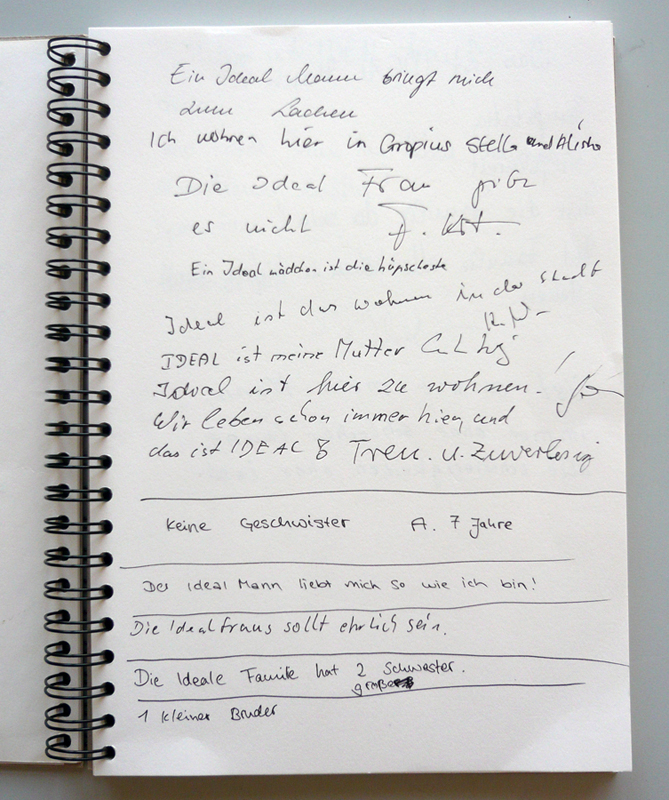 Ein Ideal Mann bringt mich
zum Lachen
Ich wohnen hier in Gropius Stella and
Die Ideal Frau gibz
es nicht F.
Ein Ideal mädchen ist die hüpscheste
Ideal ist das wohnen in der Stadt
IDEAL ist meine Mutter
Ideal ist hier zu wohnen.
Wir leben schon immer hier und
das ist IDEAL & Treu. u. Zuverlässig
Keine Geschwister A. 7 Jahre
Der Ideal Mann liebt mich so wie ich bin!
Die Idealfraus sollt ehrlich sein.
Die Ideale Familie hat 2 Schwester.
große
1 kleiner Bruder